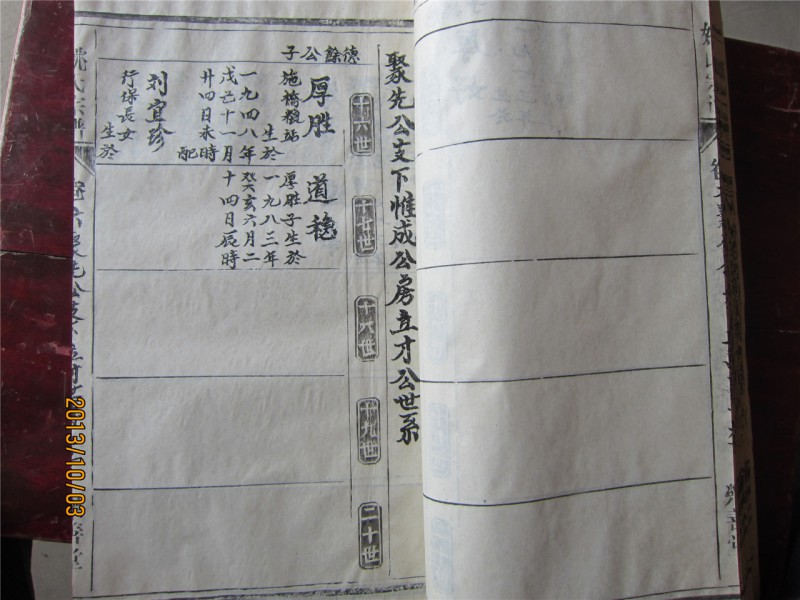 聚先公支下惟成公房立才公世系
十六世
十七世
十八世
十九世
二十世
德餘公子
厚胜
施橋糧站
生於
一九四八年
戊子十一月
廿四日未時
配
刘宜珍
行保長女
生於
道穩
厚胜子生於
一九八三年
癸亥六月二
十四日辰時
2013/10/03